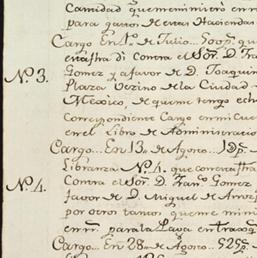 Cantidad que me ministró en
para gastos de estas Haciendas
Cargo En 1.º de Julio... 500p.s que
esta fha di Contra el Sõr. D. Fran
N.º 3.
Gomez y a favor de D. Joaquin
Plaza Vezino de la Ciudad
Mexico, de que me tengo echo
Correspondiente Cargo en mi Cuen
en el Libro de Administracio
Cargo... En 13 de Agosto... 
Libranza N.º 4. que con esta fha
N.º 4.
Contra el Sõr. D. Fran.co Gomez
favor de D. Miguel de
por otros tantos que me mini
en para la Raya
Cargo... En 28 de Agosto... 525p.s